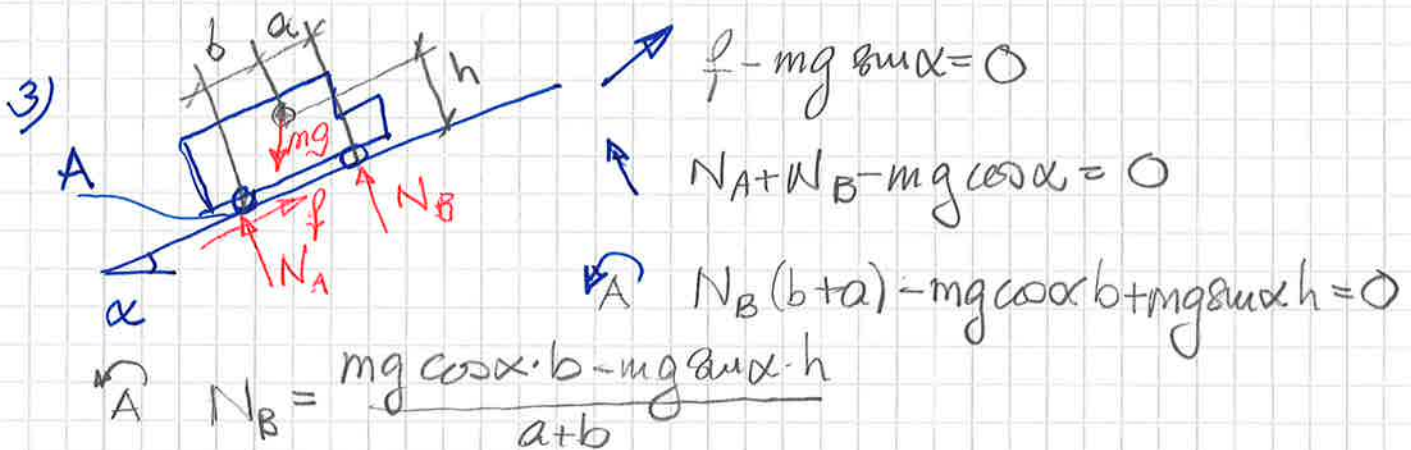 3)
b a h
mg
A
N_B
f
N_A
α
f - mg sin α = 0
N_A + N_B - mg cos α = 0
A N_B (b+a) - mg cos α b + mg sin α h = 0
A N_B = \frac{mg cos α · b - mg sin α · h}{a+b}